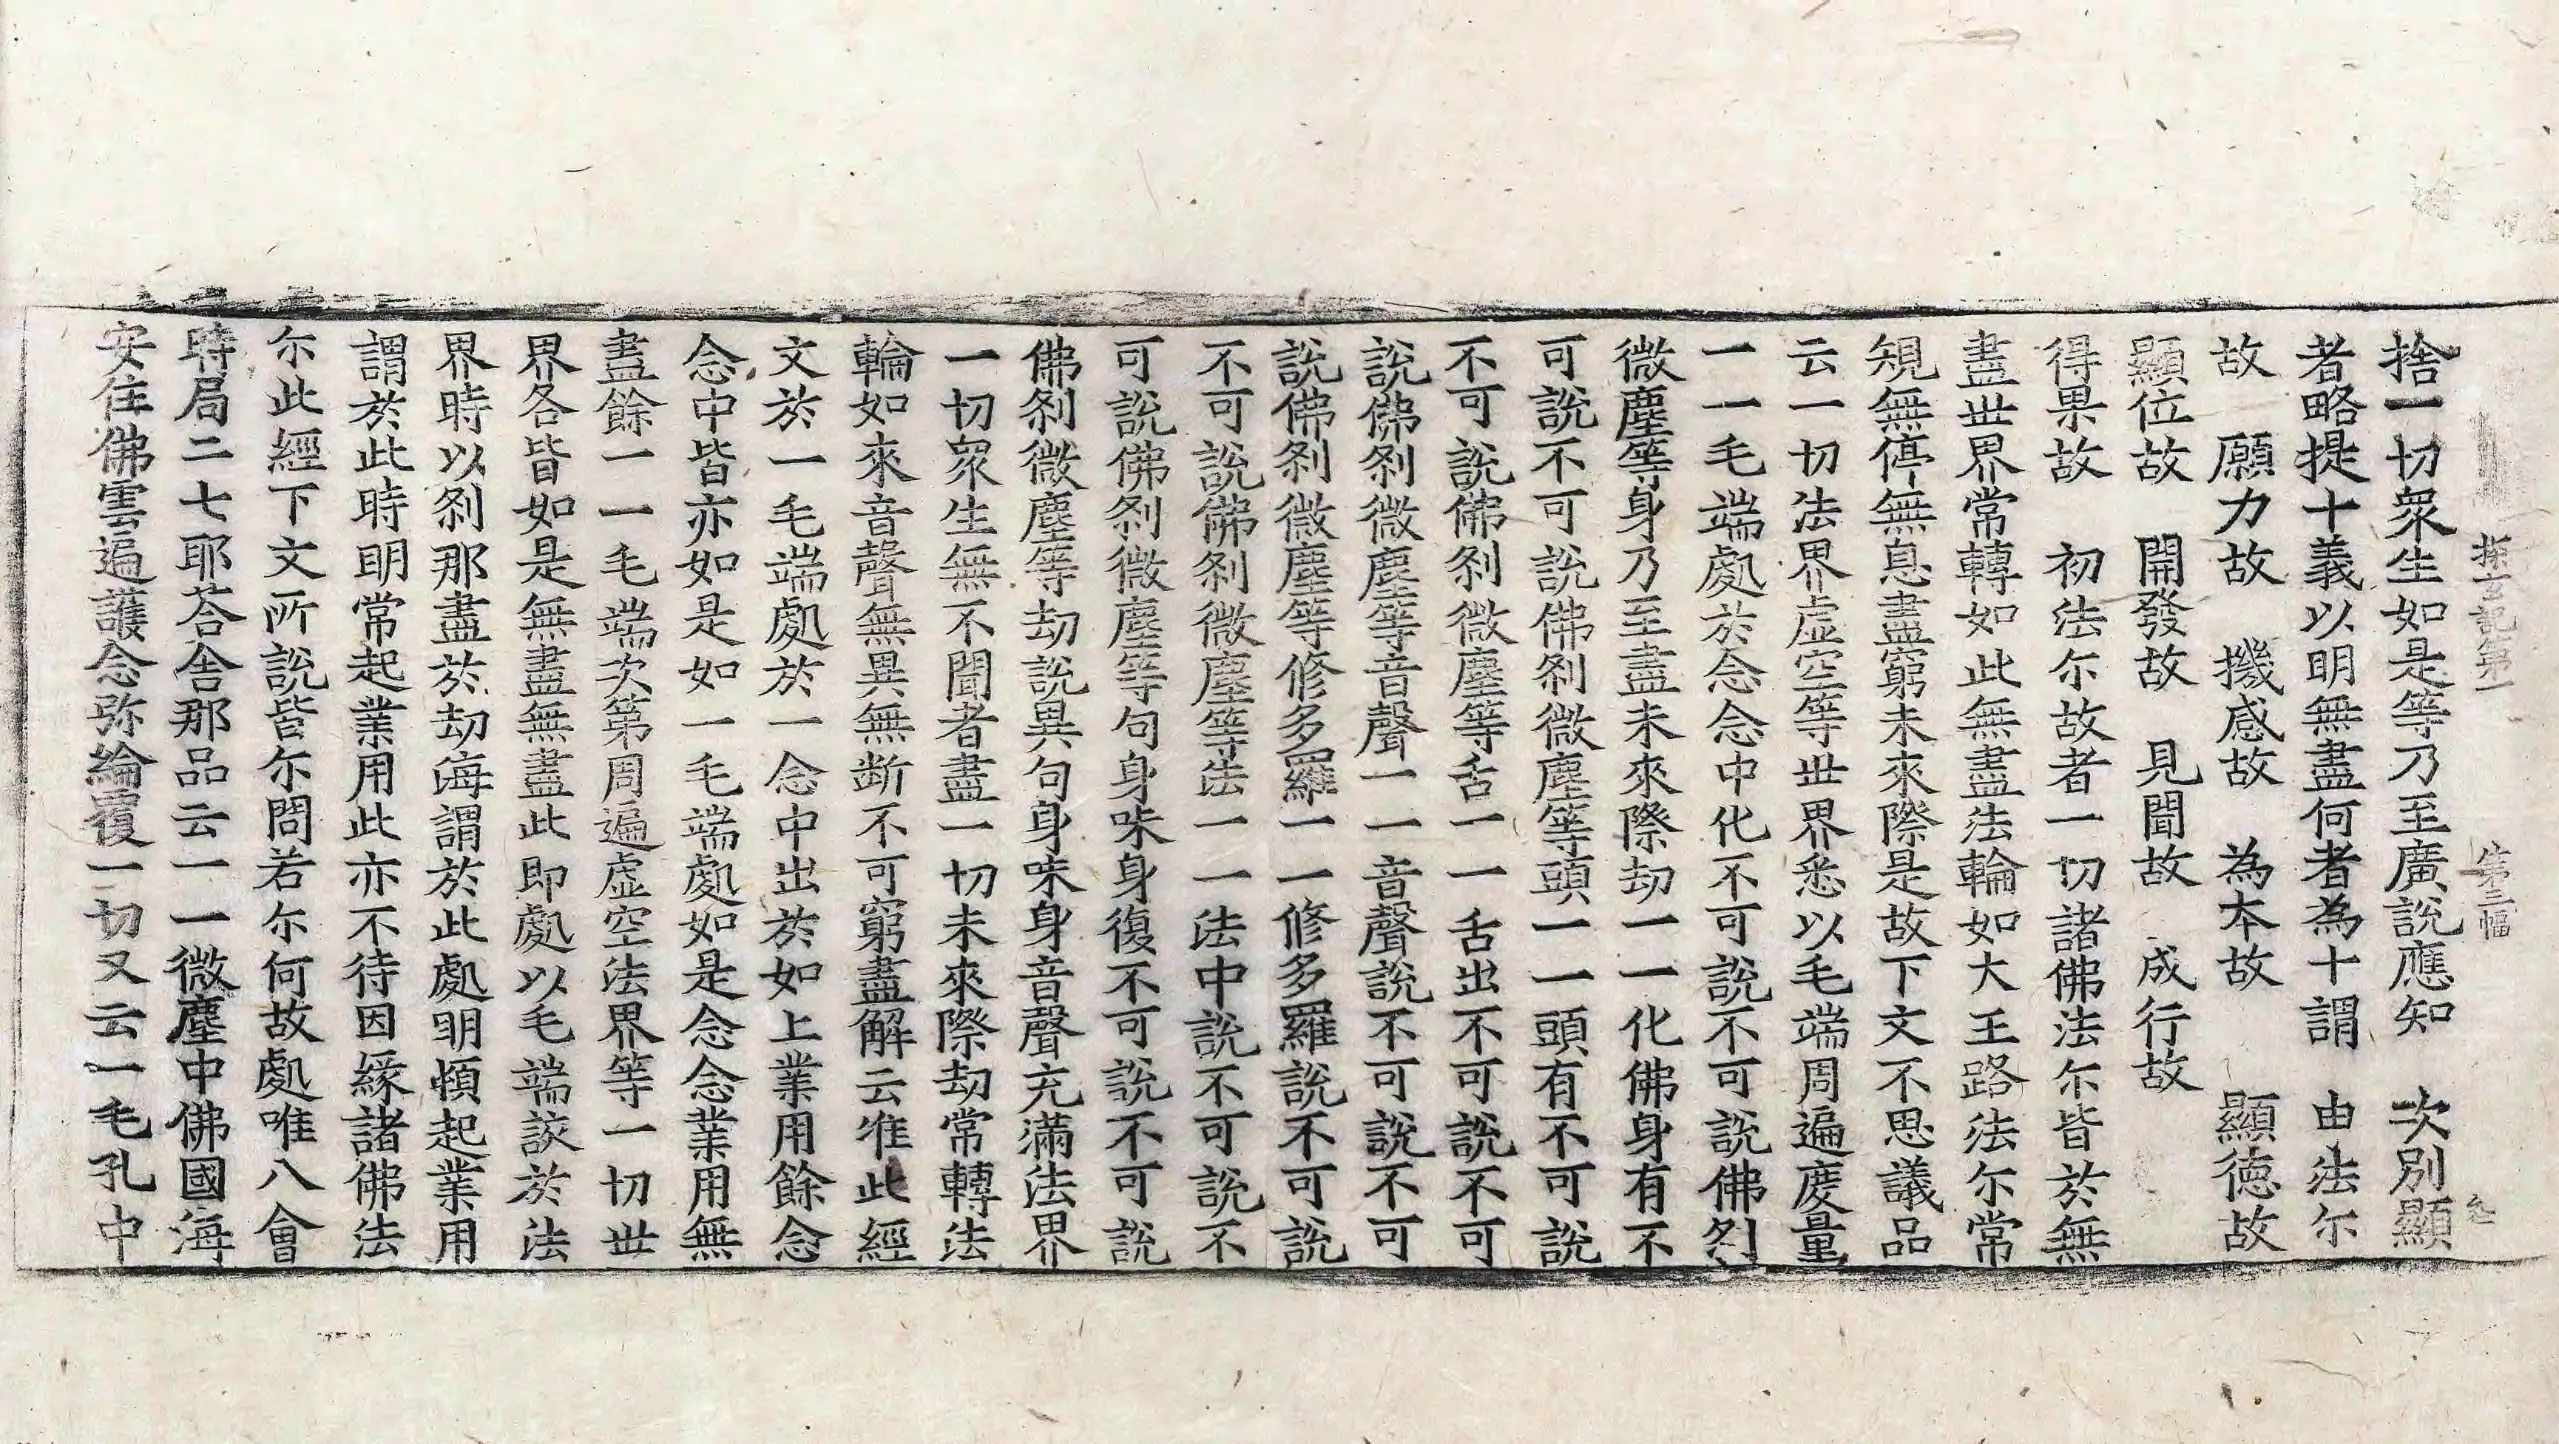 探玄記第一 第三幅
捨一切衆生如是等乃至廣說應知 次別顯
者略提十義以明無盡何者為十謂 由法尒
故 願力故 機感故 為本故 顯德故
顯位故 開發故 見聞故 成行故
得果故 初法尒故者一切諸佛法尒皆於無
盡世界常轉如此無盡法輪如大王路法尒常
規無停無息盡窮未來際是故下文不思議品
云一切法界虛空等世界悉以毛端周遍度量
一一毛端處於念念中化不可說不可說佛刹
微塵等身乃至盡未來際劫一一化佛身有不
可說不可說佛刹微塵等頭一一頭有不可說
不可說佛刹微塵等舌一一舌出不可說不可
說佛刹微塵等音聲一一音聲說不可說不可
說佛刹微塵等修多羅一一修多羅說不可說
不可說佛刹微塵等法一一法中說不可說不
可說佛刹微塵等句身味身復不可說不可說
佛刹微塵等劫說異句身味身音聲充滿法界
一切衆生無不聞者盡一切未來際劫常轉法
輪如來音聲無異無断不可窮盡解云准此經
文於一毛端處於一念中出於如上業用餘念
念中皆亦如是如一毛端處如是念念業用無
盡餘一一毛端次第周遍虛空法界等一切世
界各皆如是無盡無盡此即處以毛端該於法
界時以刹那盡於劫海謂於此處明頓起業用
謂於此時明常起業用此亦不待因緣諸佛法
尒此經下文所說皆尒問若尒何故處唯八會
時局二七耶荅舍那品云一一微塵中佛國海
安住佛雲遍護念弥綸覆一切又云一毛孔中